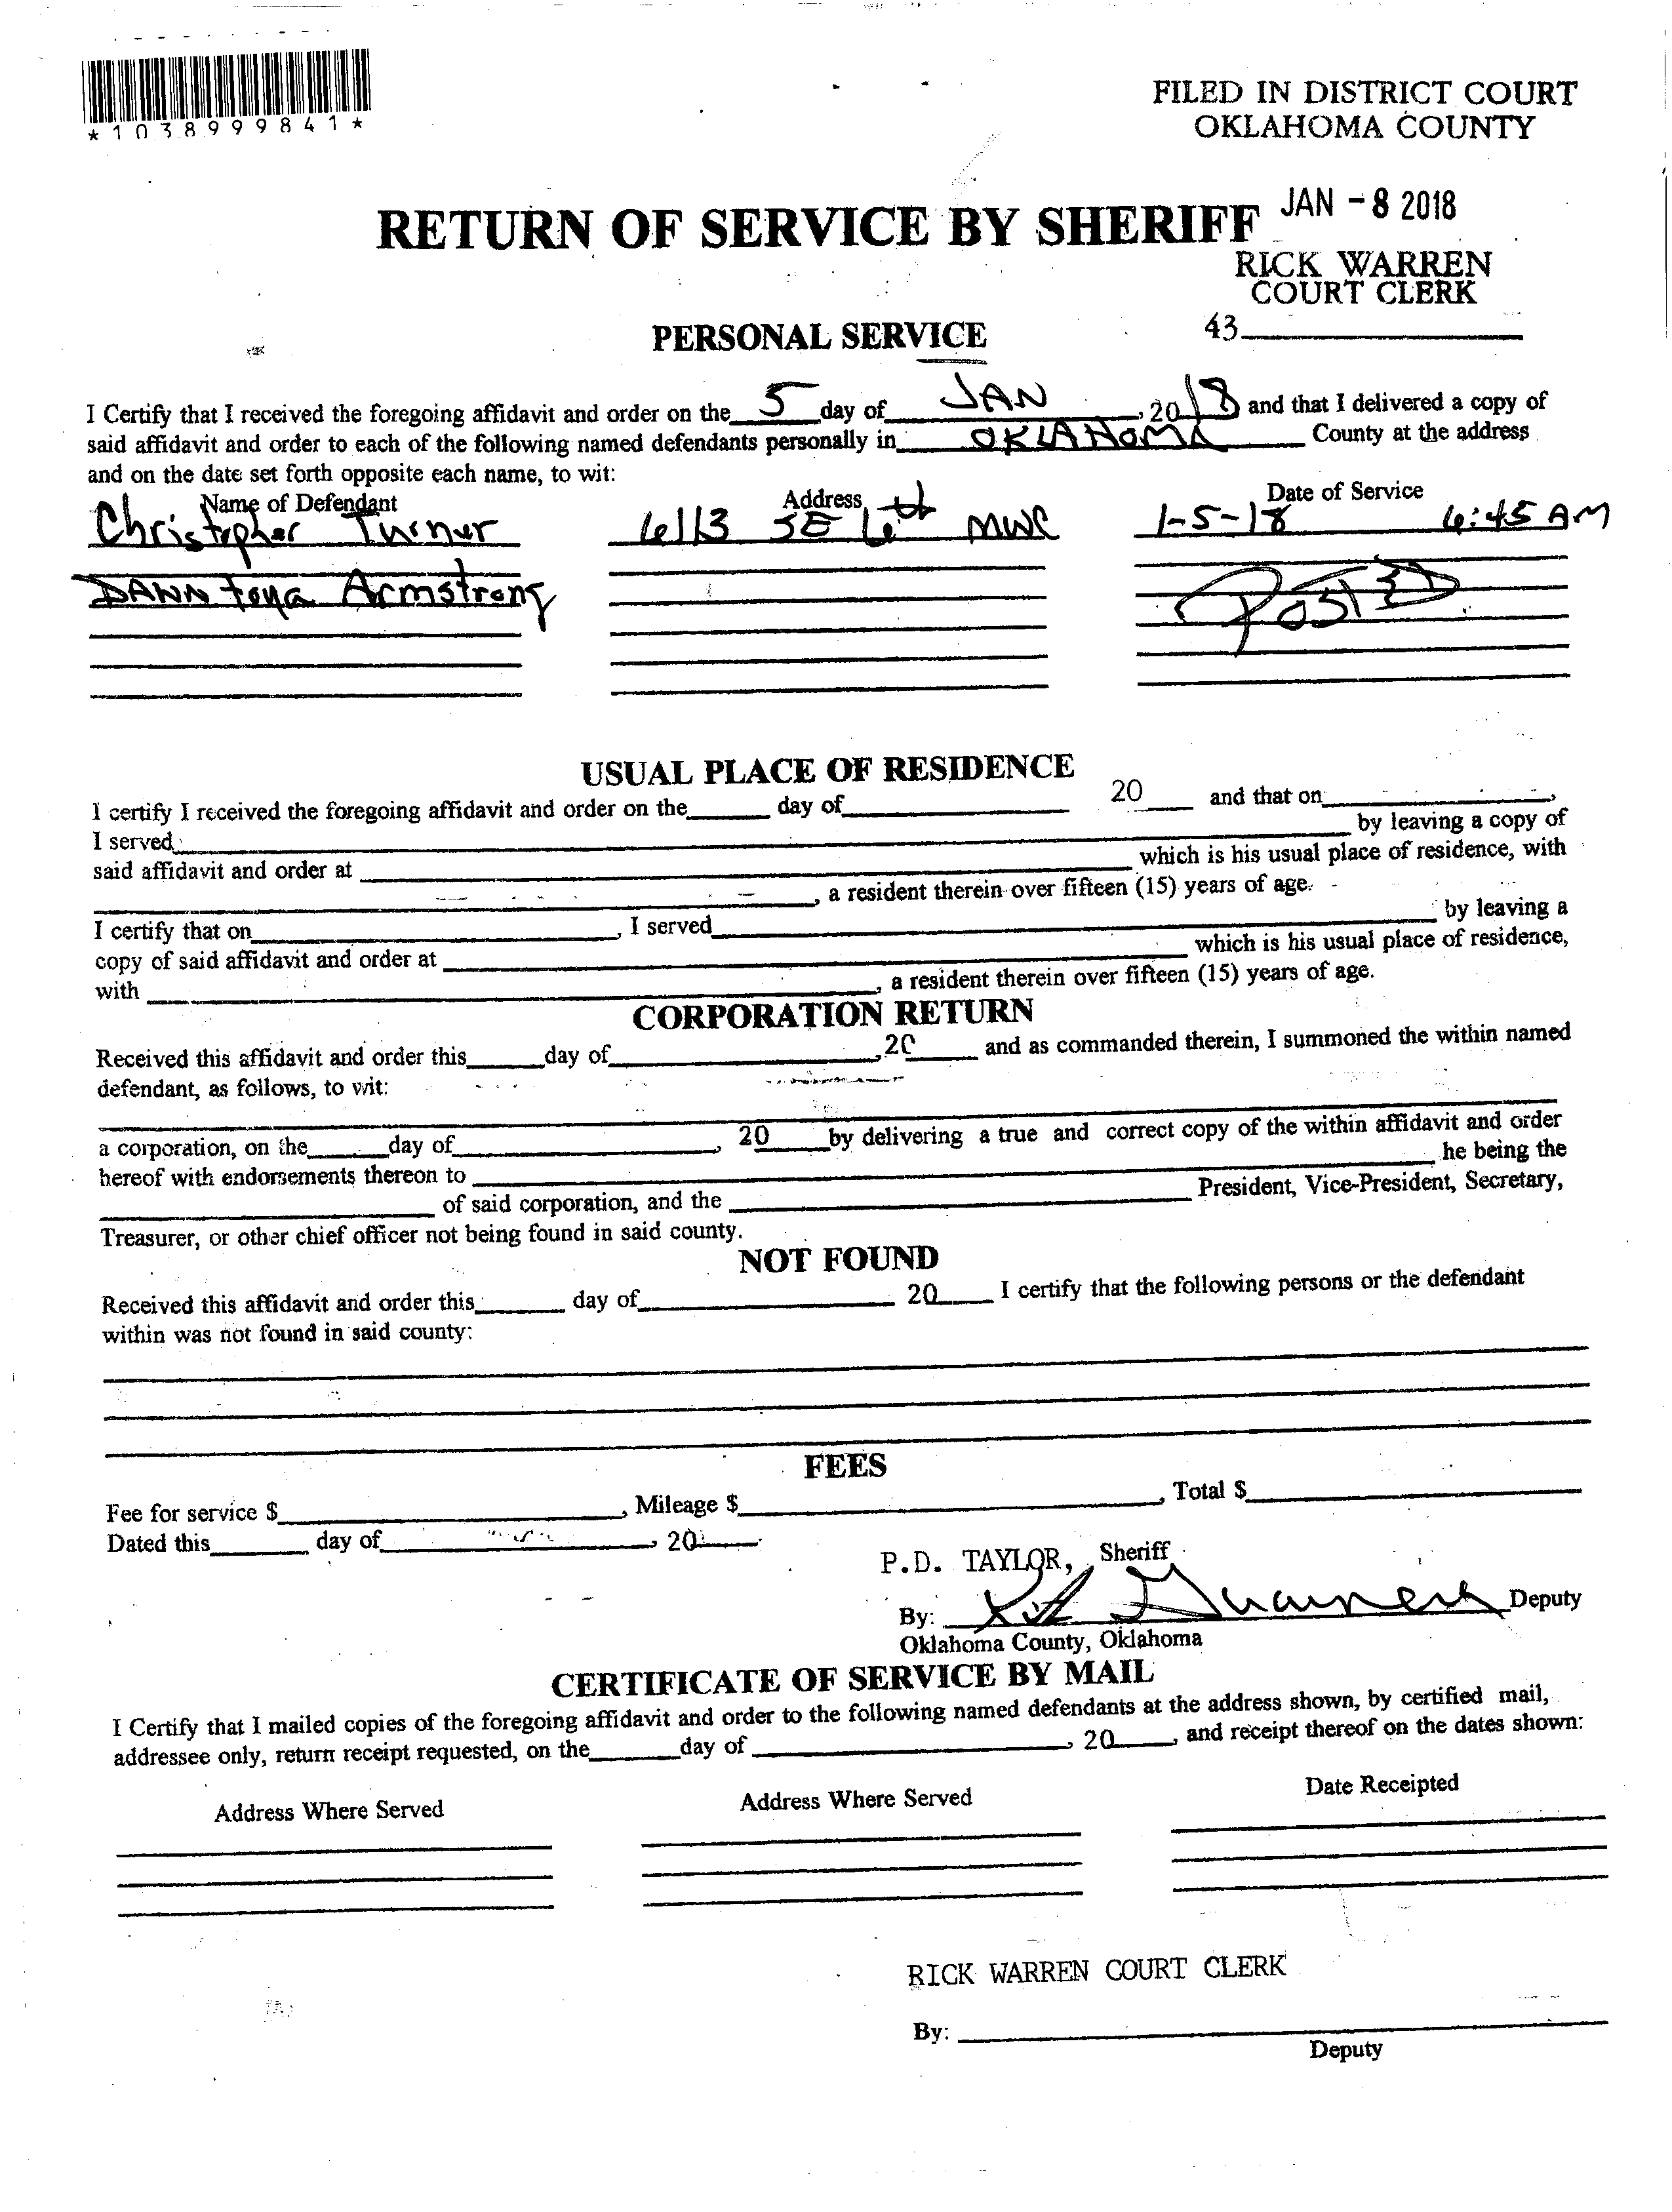 *1038999841*
FILED IN DISTRICT COURT
OKLAHOMA COUNTY
JAN - 8 2018
RETURN OF SERVICE BY SHERIFF
RICK WARREN
COURT CLERK
43
PERSONAL SERVICE
I Certify that I received the foregoing affidavit and order on the 5 day of JAN , 2018 and that I delivered a copy of
said affidavit and order to each of the following named defendants personally in OKLAHOMA County at the address
and on the date set forth opposite each name, to wit:
Name of Defendant Address Date of Service
Christopher Turner 6113 SE 6th MWC 1-5-18 6:45 AM
DANN toya Armstrong POSTED
USUAL PLACE OF RESIDENCE
I certify I received the foregoing affidavit and order on the day of 20 and that on ,
I served by leaving a copy of
said affidavit and order at which is his usual place of residence, with
, a resident therein over fifteen (15) years of age.
I certify that on , I served by leaving a
copy of said affidavit and order at which is his usual place of residence,
with , a resident therein over fifteen (15) years of age.
CORPORATION RETURN
Received this affidavit and order this day of , 20 and as commanded therein, I summoned the within named
defendant, as follows, to wit:
a corporation, on the day of , 20 by delivering a true and correct copy of the within affidavit and order
hereof with endorsements thereon to he being the
of said corporation, and the President, Vice-President, Secretary,
Treasurer, or other chief officer not being found in said county.
NOT FOUND
Received this affidavit and order this day of 20 I certify that the following persons or the defendant
within was not found in said county:
FEES
Fee for service $ , Mileage $ , Total $
Dated this day of , 20
P.D. TAYLOR, Sheriff
By: Deputy
Oklahoma County, Oklahoma
CERTIFICATE OF SERVICE BY MAIL
I Certify that I mailed copies of the foregoing affidavit and order to the following named defendants at the address shown, by certified mail,
addressee only, return receipt requested, on the day of , 20 , and receipt thereof on the dates shown:
Address Where Served Address Where Served Date Receipted
RICK WARREN COURT CLERK
By:
Deputy